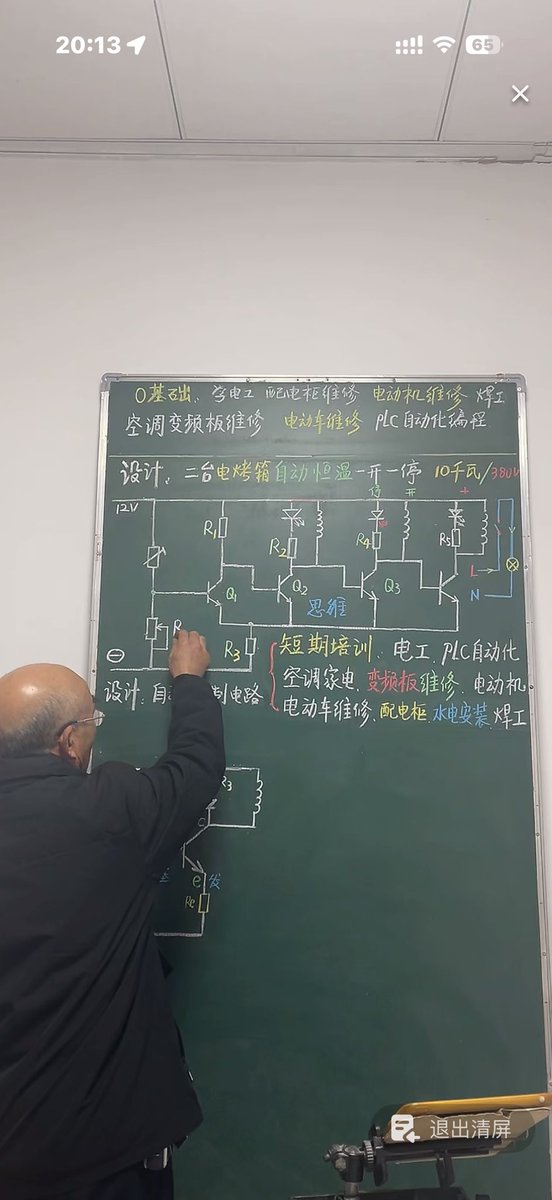 20:13
65
0基础、学电工 配电柜维修 电动机维修 焊工
空调变频板维修 电动车维修 PLC自动化编程
设计：二台电烤箱自动恒温一开一停 10千瓦/380V
停 开 +
12V
R1 R2 R4 R5
L
Q1 Q2 Q3
N
思维
R
R3
短期培训、电工、PLC自动化
空调家电、变频板维修、电动机
电动车维修、配电柜、水电安装、焊工
设计：自 制电路
R3
C
e 发
Re
退出清屏